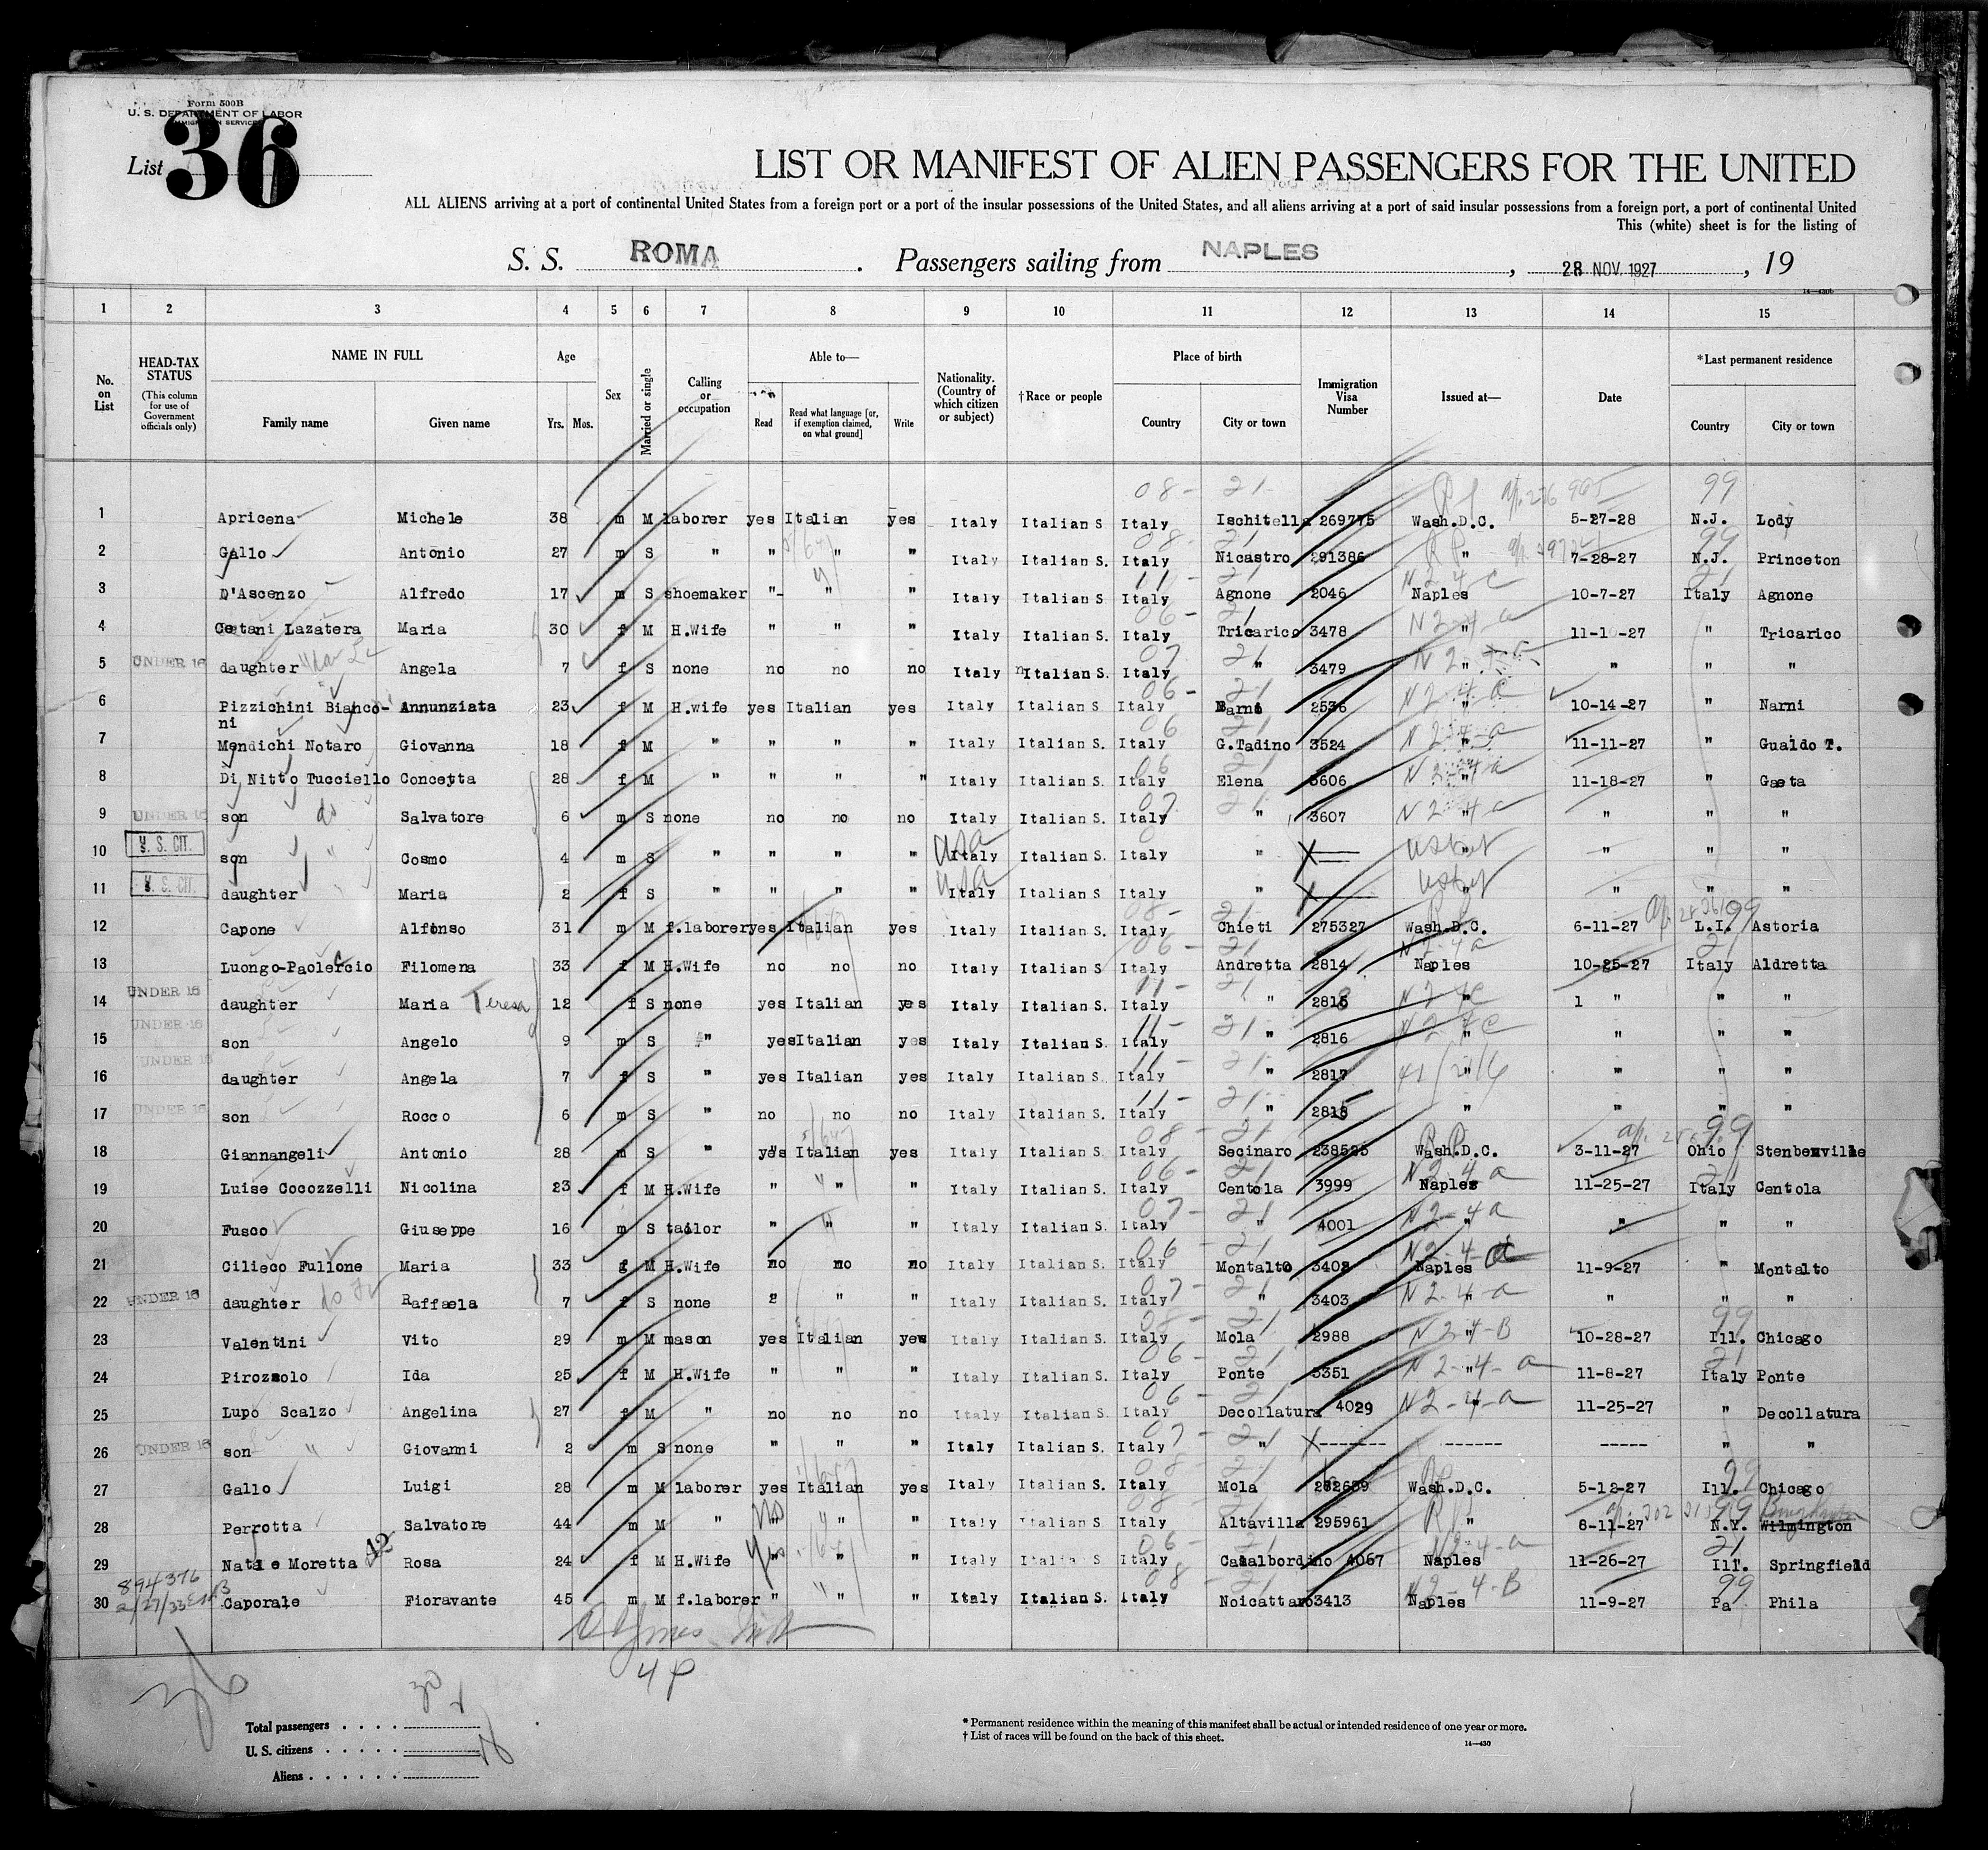 Form 500B
U. S. DEPARTMENT OF LABOR
IMMIGRATION SERVICE
List 36
LIST OR MANIFEST OF ALIEN PASSENGERS FOR THE UNITED
ALL ALIENS arriving at a port of continental United States from a foreign port or a port of the insular possessions of the United States, and all aliens arriving at a port of said insular possessions from a foreign port, a port of continental United
This (white) sheet is for the listing of
S. S. ROMA. Passengers sailing from NAPLES, 28 NOV. 1927, 19
14—430b
1 2 3 4 5 6 7 8 9 10 11 12 13 14 15
No. on List
HEAD-TAX STATUS (This column for use of Government officials only)
NAME IN FULL Family name Given name
Age Yrs. Mos.
Sex
Married or single
Calling or occupation
Able to— Read Read what language [or, if exemption claimed, on what ground] Write
Nationality. (Country of which citizen or subject)
†Race or people
Place of birth Country City or town
Immigration Visa Number
Issued at—
Date
*Last permanent residence Country City or town
08 - 21 99
1 Apricena Michele 38 m M laborer yes Italian yes Italy Italian S Italy Ischitella 269775 Wash.D.C. 5-27-28 N.J. Lody
2 Gallo Antonio 27 m S " " " " Italy Italian S. Italy Nicastro 291386 " 7-28-27 N.J. Princeton
3 D'Ascenzo Alfredo 17 m S shoemaker "- " " Italy Italian S Italy Agnone 2046 Naples 10-7-27 Italy Agnone
4 Cetani Lazatera Maria 30 f M H.Wife " " " Italy Italian S. Italy Tricarico 3478 " 11-1-27 " Tricarico
5 UNDER 16 daughter Angela 7 f S none no no no Italy Italian S. Italy " 3479 " " " "
6 Pizzichini Bianco- Annunziata 23 f M H.wife yes Italian yes Italy Italian S. Italy Narni 2536 " 10-14-27 " Narni
ni
7 Mendichi Notaro Giovanna 18 f M " " " " Italy Italian S. Italy G.Tadino 3524 " 11-11-27 " Gualdo T.
8 Di Nitto Tucciello Concetta 28 f M " " " " Italy Italian S. Italy Elena 3606 " 11-18-27 " Gaeta
9 UNDER 16 son do Salvatore 6 m S none no no no Italy Italian S. Italy " 3607 " " " "
10 U. S. CIT. son " Cosmo 4 m S " " " " usa Italy Italian S. Italy " X " " " "
11 U. S. CIT. daughter " Maria 2 f S " " " " usa Italy Italian S Italy " X " " " "
12 Capone Alfonso 31 m M f.laborer yes Italian yes Italy Italian S. Italy Chieti 275327 Wash.D.C. 6-11-27 L.I. Astoria
13 Luongo-Paolercio Filomena 33 f M H.Wife no no no Italy Italian S Italy Andretta 2814 Naples 10-25-27 Italy Aldretta
14 UNDER 16 daughter Maria Teresa 12 f S none yes Italian yes Italy Italian S. Italy " 2815 " 1 " " "
15 UNDER 16 son Angelo 9 m S " yes Italian yes Italy Italian S. Italy " 2816 " " " "
16 UNDER 16 daughter Angela 7 f S " yes Italian yes Italy Italian S. Italy " 2817 " " " "
17 UNDER 16 son Rocco 6 m S " no no no Italy Italian S. Italy " 2818 " " " "
18 Giannangeli Antonio 28 m S " yes Italian yes Italy Italian S. Italy Secinaro 238525 Wash.D.C. 3-11-27 Ohio Stenbenville
19 Luise Cocozzelli Nicolina 23 f M H.Wife " " " Italy Italian S. Italy Centola 3999 Naples 11-25-27 Italy Centola
20 Fusco Giuseppe 16 m S tailor " " " Italy Italian S. Italy " 4001 " " " "
21 Cilieco Fullone Maria 33 f M H.Wife no no no Italy Italian S. Italy Montalto 3402 Naples 11-9-27 " Montalto
22 UNDER 16 daughter do Raffaela 7 f S none " " " Italy Italian S. Italy " 3403 " " " "
23 Valentini Vito 29 m M mason yes Italian yes Italy Italian S. Italy Mola 2988 " 10-28-27 Ill. Chicago
24 Pirozzolo Ida 25 f M H.Wife " " " Italy Italian S. Italy Ponte 3351 " 11-8-27 Italy Ponte
25 Lupo Scalzo Angelina 27 f M " no no no Italy Italian S. Italy Decollatura 4029 " 11-25-27 " Decollatura
26 UNDER 16 son " Giovanni 2 m S none " " " Italy Italian S. Italy " X------- ------ ----- " "
27 Gallo Luigi 28 m M laborer yes Italian yes Italy Italian S. Italy Mola 282639 Wash.D.C. 5-12-27 Ill. Chicago
28 Perrotta Salvatore 44 m M " no " " Italy Italian S. Italy Altavilla 295961 " 8-11-27 N.Y. Wilmington
29 Natle Moretta Rosa 24 f M H.Wife yes " " Italy Italian S Italy Casalbordino 4067 Naples 11-26-27 Ill. Springfield
894376
2/27/33
30 Caporale Fioravante 45 m M f.laborer " " " Italy Italian S. Italy Noicattaro 3413 Naples 11-9-27 Pa Phila
36
30
Total passengers
U. S. citizens
Aliens
* Permanent residence within the meaning of this manifest shall be actual or intended residence of one year or more.
† List of races will be found on the back of this sheet.
14—430